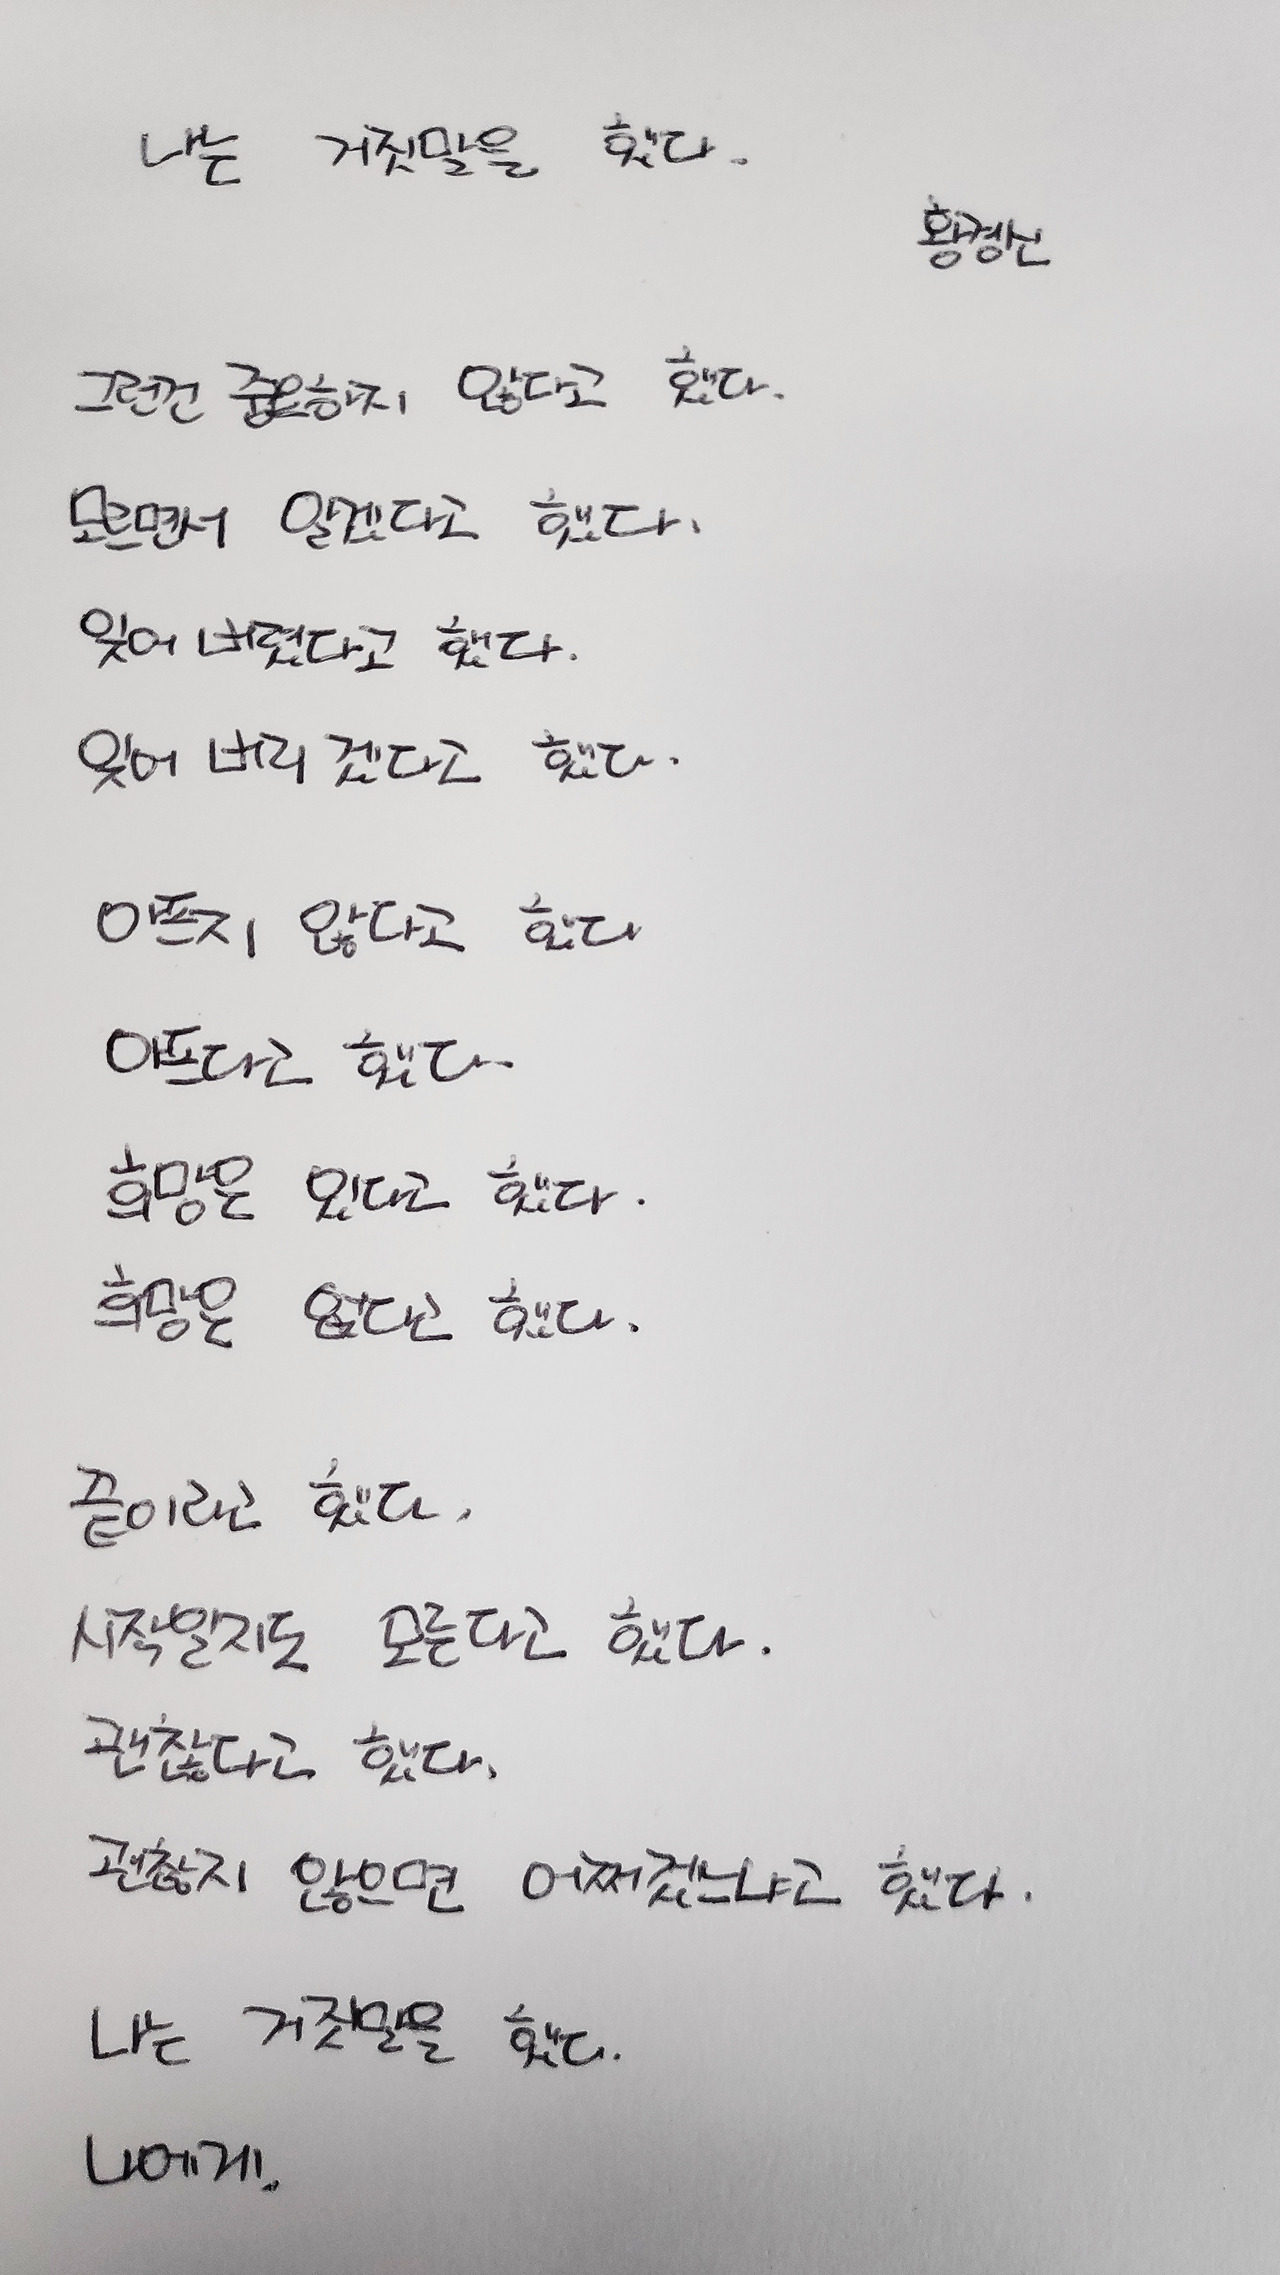 나는 거짓말을 했다.
황경신
그런건 중요하지 않다고 했다.
모르면서 알겠다고 했다.
잊어 버렸다고 했다.
잊어 버리겠다고 했다.
아프지 않다고 했다
아프다고 했다.
희망은 있다고 했다.
희망은 없다고 했다.
끝이라고 했다.
시작일지도 모른다고 했다.
괜찮다고 했다.
괜찮지 않으면 어쩌겠느냐고 했다.
나는 거짓말을 했다.
나에게.